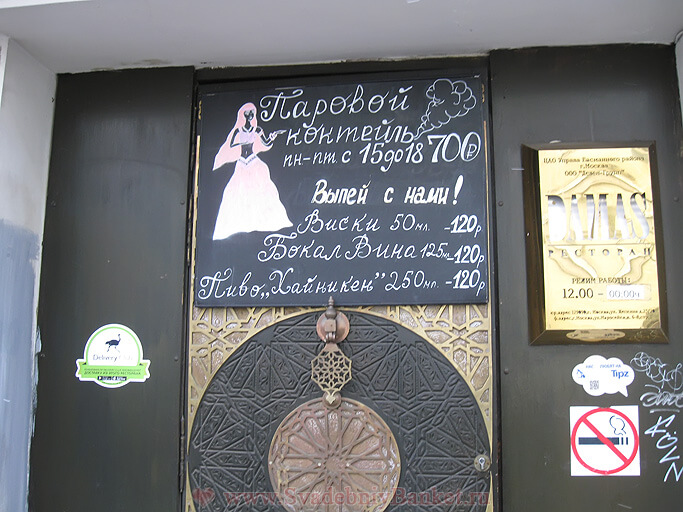 Паровой
коктейль
пн-пт с 15 до 18 700р
Выпей с нами!
Виски 50мл. -120р
Бокал Вина 125мл -120р
Пиво „Хайникен” 250мл. -120р
ЦАО Управа Басманного района
г.Москва
DAMAS
РЕСТОРАН
РЕЖИМ РАБОТЫ:
12.00 - 00.00ч
Delivery
Tipz
www.SvadebniyBanket.ru